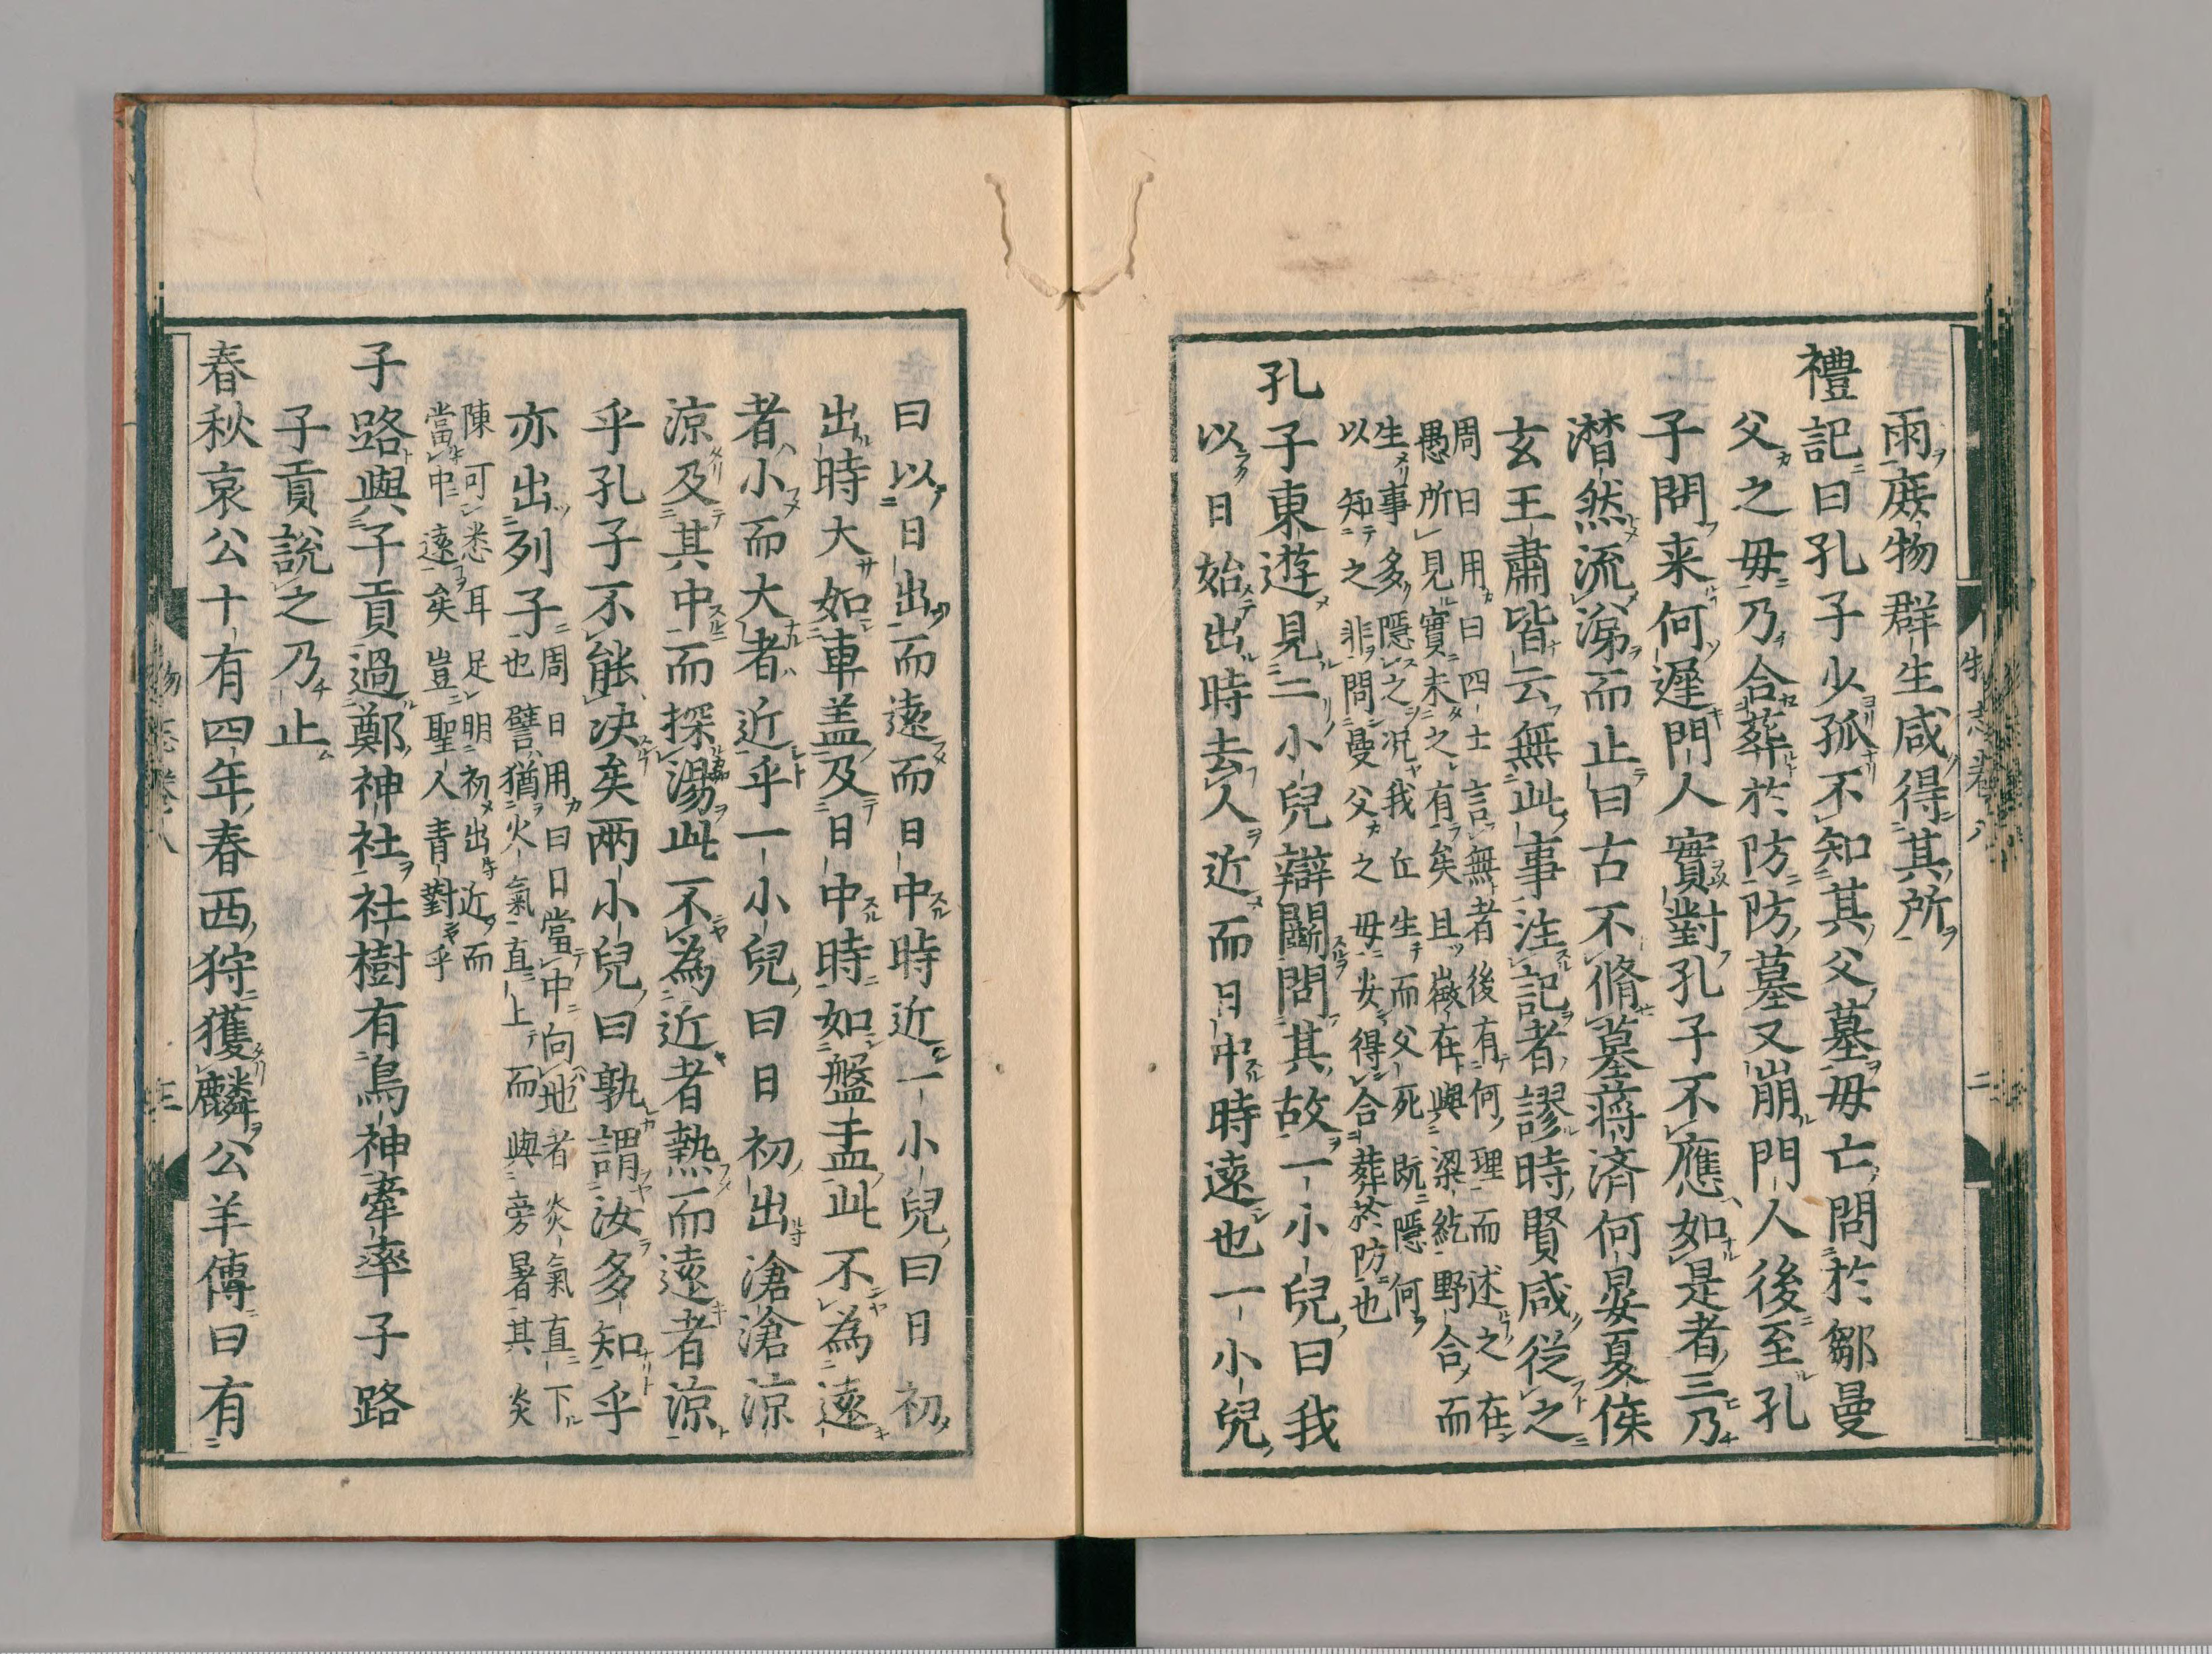 雨庭物群生咸得其所
禮記曰孔子少孤不知其父墓母亡問於鄒曼
父之母乃合葬於防防墓又崩門人後至孔
子問来何遲門人實對孔子不應如是者三乃
潜然流涕而止曰古不脩墓蒋済何晏夏侯
玄王肅皆云無此事注記者謬時賢咸従之
周日用曰四士言無者後有何理而述之在
愚所見實未之有矣且徴在與梁紇野合而
生事多隱之况我丘生而父死既隱何
以知之非問曼父之母安得合葬於防也
孔子東遊見二小兒辯鬭問其故一小兒曰我
以日始出時去人近而日中時遠也一小兒
曰以日出而遠而日中時近一小兒曰日初
出時大如車盖及日中時如盤盂此不為遠
者小而大者近乎一小兒曰日初出滄滄涼
涼及其中而探湯此不為近者熱而遠者涼
乎孔子不能決矣兩小兒曰孰謂汝多知乎
亦出列子也
周日用曰日當中向地者炎氣直下
譬猶火氣直上而與旁暑其炎
陳可悉耳足明初出近而
當中遠矣豈聖人青對乎
子路與子貢過鄭神社社樹有鳥神牽率子路
子貢說之乃止
春秋哀公十有四年春西狩獲麟公羊傳曰有
物志卷八
三